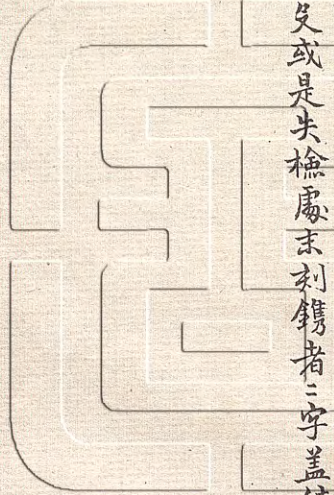 或是失檢處末刻鐫者二字蓋